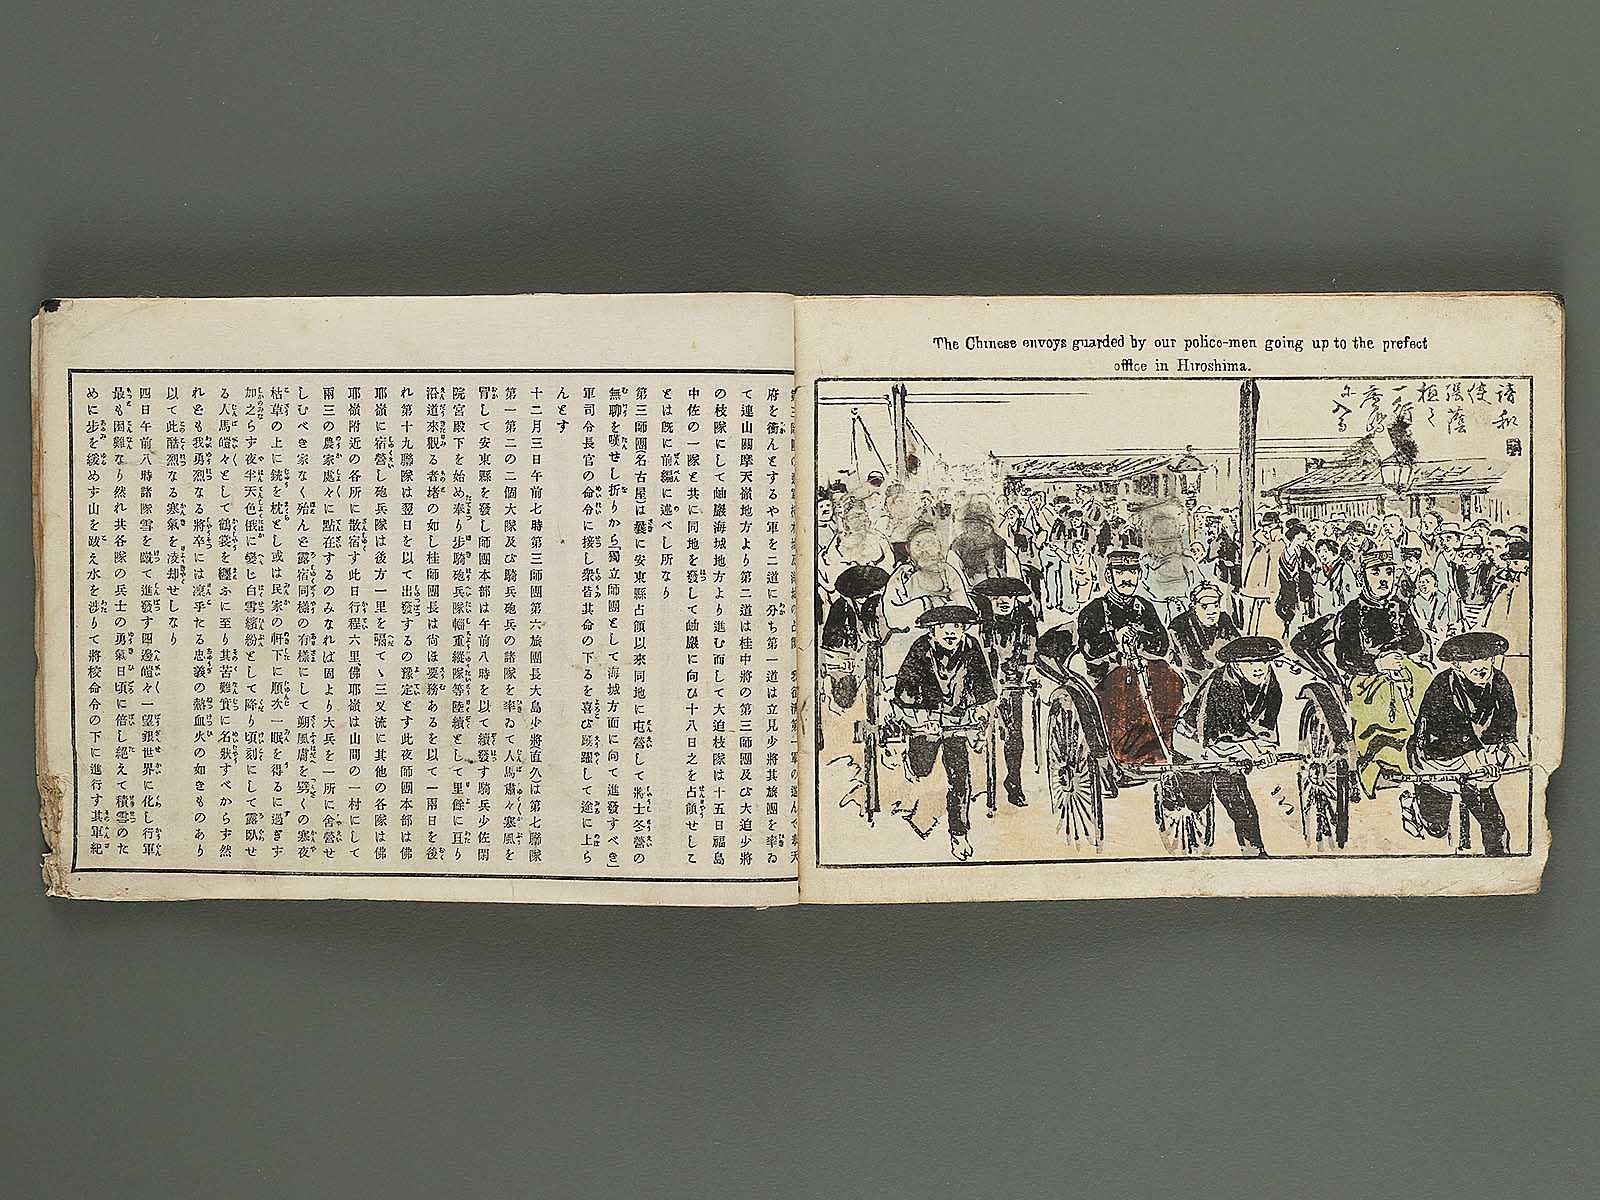 The Chinese envoys guarded by our police-men going up to the prefect
office in Hiroshima.
請和
使
張蔭
桓之
一行
廣島
に入る
府を衝んとするや軍を二道に分ち第一道は立見少將其旅團を率ゐ
て連山關摩天嶺地方より第二道は桂中將の第三師團及び大迫少將
の枝隊にして岫巖海城地方より進む而して大迫枝隊は十五日福島
中佐の一隊と共に同地を發して岫巖に向ひ十八日之を占領せしこ
とは既に前編に述べし所なり
第三師團(名古屋)は曩に安東縣占領以來同地に屯營して將士冬營の
無聊を嘆せし折りから「獨立師團として海城方面に向て進發すべき」
軍司令長官の命令に接し衆皆其命の下るを喜び踴躍して途に上ら
んとす
十二月三日午前七時第三師團第六旅團長大島少將直久は第七聯隊
第一第二の二個大隊及び騎兵砲兵の諸隊を率ゐて人馬肅々寒風を
冐して安東縣を發し師團本部は午前八時を以て續發す騎兵少佐閑
院宮殿下を始め奉り步騎砲兵隊輜重縱隊等陸續として里餘に亘り
沿道來觀る者堵の如し桂師團長は尚ほ要務あるを以て一兩日を後
れ第十九聯隊は翌日を以て出發するの豫定とす此夜師團本部は佛
耶嶺に宿營し砲兵隊は後方一里を隔てゝ三叉流に其他の各隊は佛
耶嶺附近の各所に散宿す此日行程六里佛耶嶺は山間の一村にして
兩三の農家處々に點在するのみなれば固より大兵を一所に舍營せ
しむべき家なく殆んど露宿同樣の有樣にして朔風膚を劈くの寒夜
枯草の上に銃を枕とし或は民家の軒下に順次一眠を得るに過ぎず
加之らず夜半天色俄に變じ白雪繽紛として降り頃刻にして露臥せ
る人馬皚々として鶴裳を纒ふに至り其苦難實に名狀すべからず然
れども我勇烈なる將卒には凛乎たる忠義の熱血火の如きものあり
以て此酷烈なる寒氣を凌却せしなり
四日午前八時諸隊雪を蹴て進發す四邊皚々一望銀世界に化し行軍
最も困難なり然れ共各隊の兵士の勇氣日頃に倍し絕えて積雪のた
めに步を緩めず山を踰え水を涉りて將校命令の下に進行す其軍紀